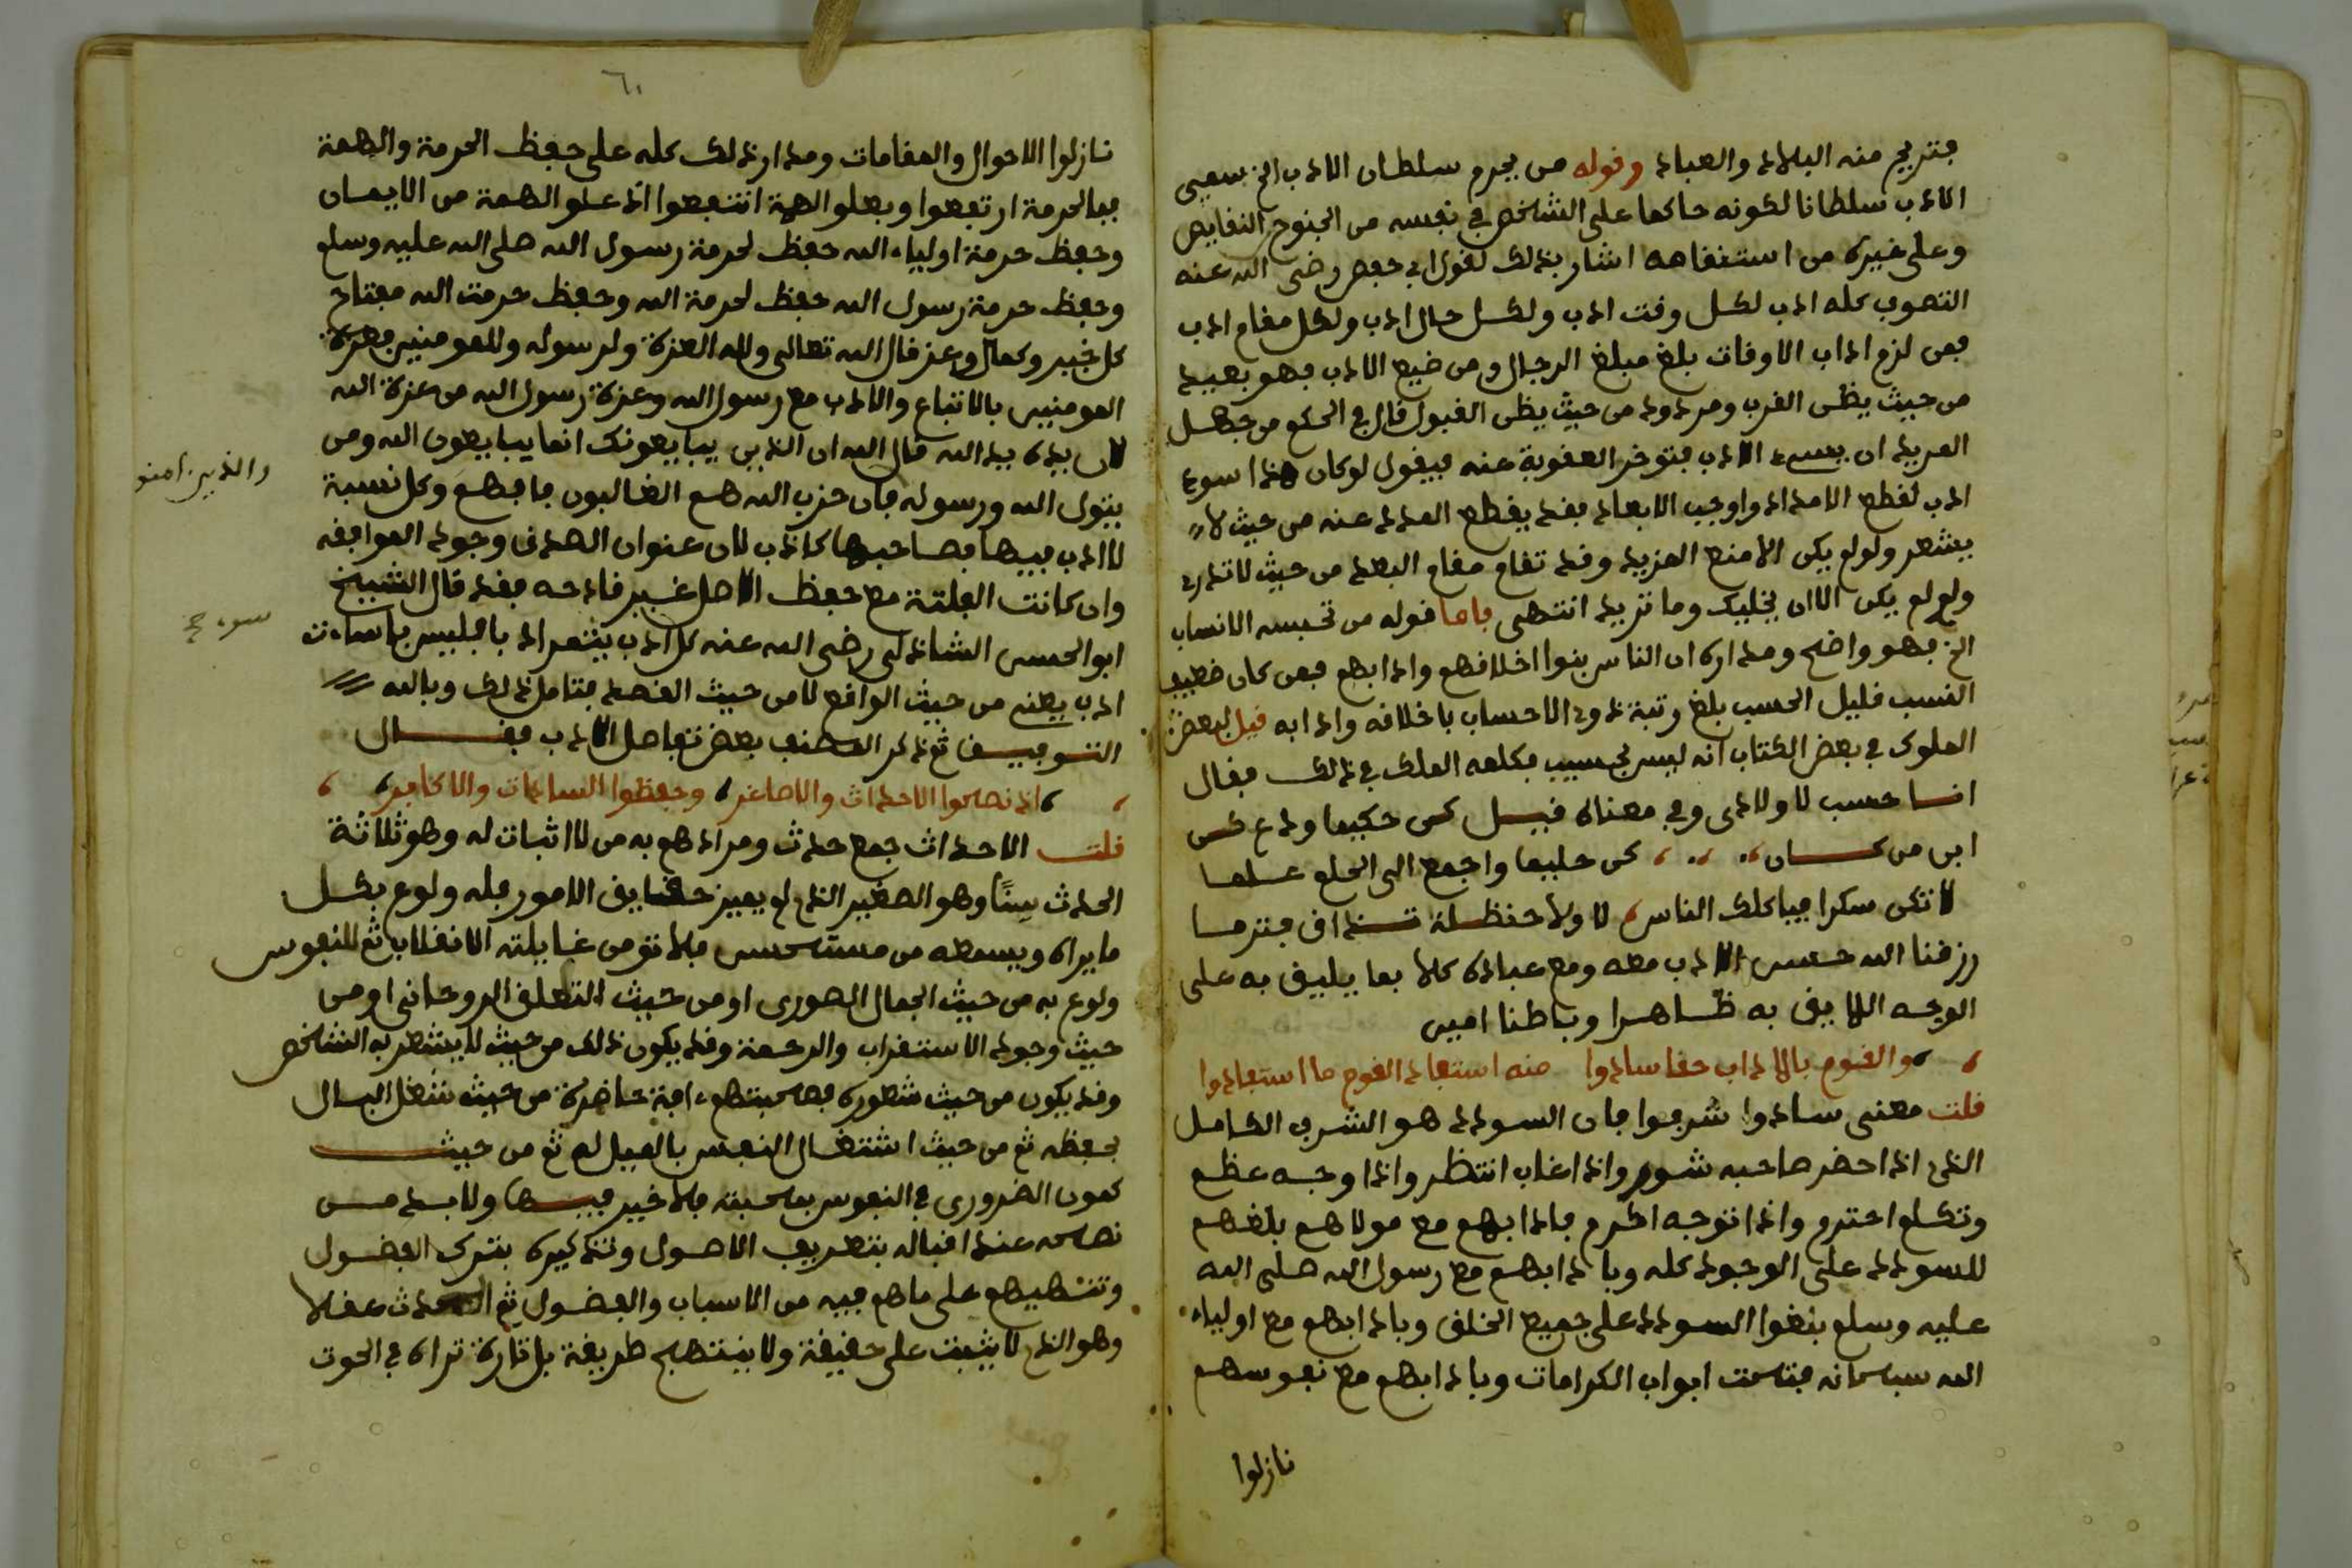 فتريح منه البلاد والعباد وقوله من يحرم سلطان الادب الخ سمي
الادب سلطانا لكونه حاكما على الشخص في نفسه من الجنوح النقايص
وعلى غيره من استنقاصه اشار بذلك لقول ابي حفص رضي الله عنه
التصوف كله ادب لكل وقت ادب ولكل حال ادب ولكل مقام ادب
فمن لزم اداب الاوقات بلغ مبلغ الرجال ومن ضيع الادب فهو بعيد
من حيث يظن القرب ومردود من حيث يظن القبول قال في الحكم من جهل
المريد ان يسيء الادب فتوخر العقوبة عنه فيقول لو كان هذا سوء
ادب لقطع الامداد واوجب الابعاد فقد يقطع المدد عنه من حيث لا
يشعر ولو لم يكن الا منع المزيد وقد تقام مقام البعد من حيث لا تدري
ولو لم يكن الا ان يخليك وما تريد انتهى فاما قوله من تحبسه الانساب
الخ فهو واضح ومداره ان الناس بنوا اخلاقهم وادابهم فمن كان خطير
النسب قليل الحسب بلغ رتبة ذوي الاحساب باخلاقه وادابه قيل لبعض
الملوك في بعض الكتاب انه ليس بحسيب فكلمه الملك في ذلك فقال
انما حسب لا ولادي وفي معناه قيل كن حكيما ودع كن
ابن من كان كن حليما واجمع الى الحلم علما
لا تكن سكرا فياكلك الناس لا ولا حنظلة تذاق فترما
رزقنا الله حسن الادب معه ومع عباده كلا بما يليق به على
الوجه اللايق به ظاهرا وباطنا امين
والقوم بالاداب حقا سادوا منه استفاد القوم ما استفادوا
قلت معنى سادوا شرفوا فان السودد هو الشرف الكامل
الذي اذا حضر صاحبه شور واذا غاب انتظر واذا وجه عظم
وتكلم احترم واذا توجه اكرم فادابهم مع مولاهم بلغهم
للسودد على الوجود كله وبادابهم مع رسول الله صلى الله
عليه وسلم بلغوا السودد على جميع الخلق وبادابهم مع اولياء
الله سبحانه فتحت ابواب الكرامات وبادابهم مع نفوسهم
نازلوا
٦٠
نازلوا الاحوال والمقامات ومدار ذلك كله على حفظ الحرمة والهمة
فبالحرمة ارتفعوا وبعلو الهمة انتفعوا اذ علو الهمة من الايمان
وحفظ حرمة اولياء الله حفظ لحرمة رسول الله صلى الله عليه وسلم
وحفظ حرمة رسول الله حفظ لحرمة الله وحفظ حرمت الله مفتاح
كل خير وكمال وعز قال الله تعالى ولله العزة ولرسوله وللمومنين فعزة
المومنين بالاتباع والادب مع رسول الله وعزة رسول الله من عزة الله
لان يده يد الله قال الله ان الذين يبايعونك انما يبايعون الله ومن
يتول الله ورسوله فان حزب الله هم الغالبون فافهم وكل نسبة
والذين امنو
لا ادب فيها فصاحبها كاذب لان عنوان الصدق وجود الموافقه
وان كانت الفلتة مع حفظ الاصل غير قادحه فقد قال الشيخ
ابو الحسن الشاذلي رضي الله عنه كل ادب يثمر ادبا فليس باساءت
سوء
ادب يعني من حيث الواقع لا من حيث القصد فتامل ذلك وبالله
التوفيق ثم ذكر المصنف بعض تفاصل الادب فقال
اذ نصحوا الاحداث والاصاغر وحفظوا السادات والاكابر
قلت الاحداث جمع حدث ومرادهم به من لا اثبات له وهو ثلاثة
الحدث سنا وهو الصغير الذي لم يميز حقايق الامور فله ولوع بكل
ما يراه ويسمعه من مستحسن فلا تومن غايلته الانقلاب ثم للنفوس
ولوع به من حيث الجمال الصوري او من حيث التعلق الروحاني او من
حيث وجود الاستغراب والرحمة وقد يكون ذلك من حيث لا يشعر به الشخص
وقد يكون من حيث شعوره فصحبتهم ءافة حاضرة من حيث شغل البال
بحفظه ثم من حيث اشتغال النفس بالميل له ثم من حيث
كمون الضروري في النفوس بصحبته فلا خير فيها ولا بد من
نصحه عند اقباله بتعريف الاصول وتذكيره بترك الفضول
وتنبيههم على ما هم فيه من الاسباب والفضول ثم الحدث عقلا
وهو الذي لا يثبت على حقيقة ولا ينتهج طريقة بل تارة تراه في الحوت